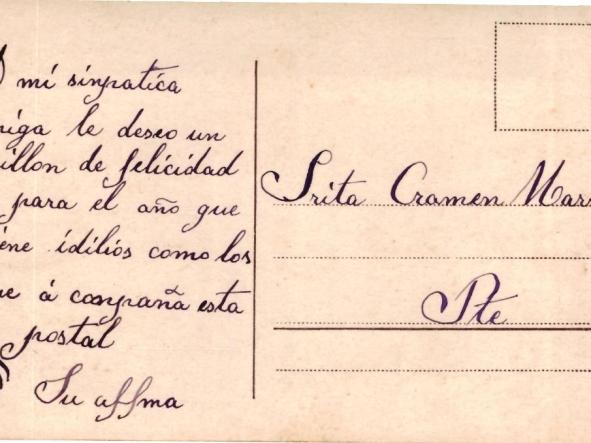 mi sinpatica
le deseo un
de felicidad
para el año que
idilios como los
á conpaña esta
postal
Su affma
Srita Cramen
Pte